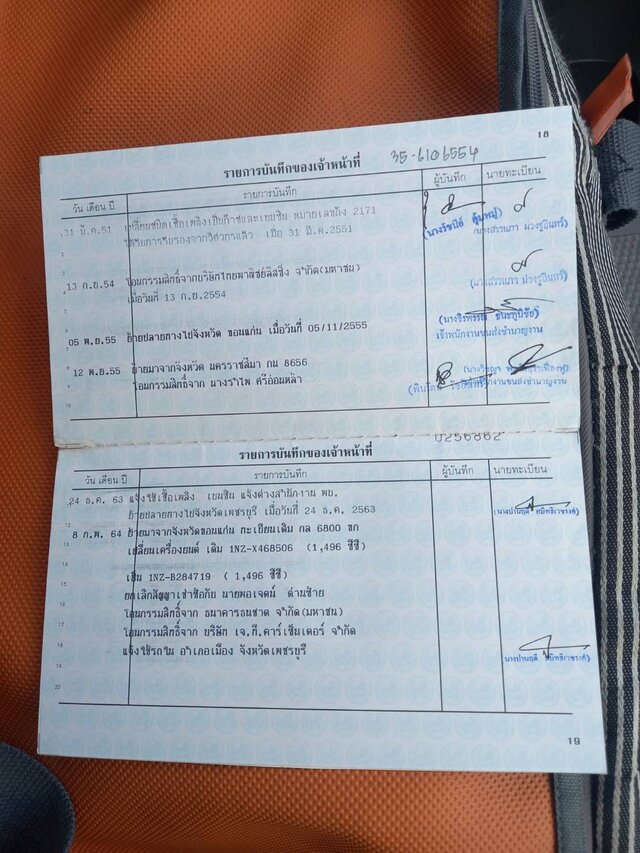 18
รายการบันทึกของเจ้าหน้าที่ 35-6106554
วัน เดือน ปี รายการบันทึก ผู้บันทึก นายทะเบียน
31 มี.ค.51 เปลี่ยนชนิดเชื้อเพลิงเป็นก๊าซและเบนซิน หมายเลขถัง 2171
ได้รับการรับรองจากวิศวกรแล้ว เมื่อ 31 มี.ค.2551
13 ก.ย.54 โอนกรรมสิทธิ์จากบริษัทไทยพาณิชย์ลีสซิ่ง จำกัด(มหาชน)
เมื่อวันที่ 13 ก.ย.2554
05 พ.ย.55 ย้ายปลายทางไปจังหวัด ขอนแก่น เมื่อวันที่ 05/11/2555
เจ้าพนักงานขนส่งชำนาญงาน
12 พ.ย.55 ย้ายมาจากจังหวัด นครราชสีมา กน 8656
โอนกรรมสิทธิ์จาก นางรำไพ ศรีอ่อนหล้า
9
10
0256862
รายการบันทึกของเจ้าหน้าที่
วัน เดือน ปี รายการบันทึก ผู้บันทึก นายทะเบียน
24 ธ.ค. 63 แจ้งใช้เชื้อเพลิง เบนซิน แจ้งต่างสำนักงาน พบ.
ย้ายปลายทางไปจังหวัดเพชรบุรี เมื่อวันที่ 24 ธ.ค. 2563
8 ก.พ. 64 ย้ายมาจากจังหวัดขอนแก่น ทะเบียนเดิม กล 6800 ขก
เปลี่ยนเครื่องยนต์ เดิม 1NZ-X468506 (1,496 ซีซี)
เป็น 1NZ-B284719 ( 1,496 ซีซี)
ยกเลิกสัญญาเช่าซื้อกับ นายพอเจตน์ ด่านซ้าย
โอนกรรมสิทธิ์จาก ธนาคารธนชาต จำกัด(มหาชน)
โอนกรรมสิทธิ์จาก บริษัท เจ.ที.คาร์เซ็นเตอร์ จำกัด
แจ้งใช้รถใน อำเภอเมือง จังหวัดเพชรบุรี
19
20
19